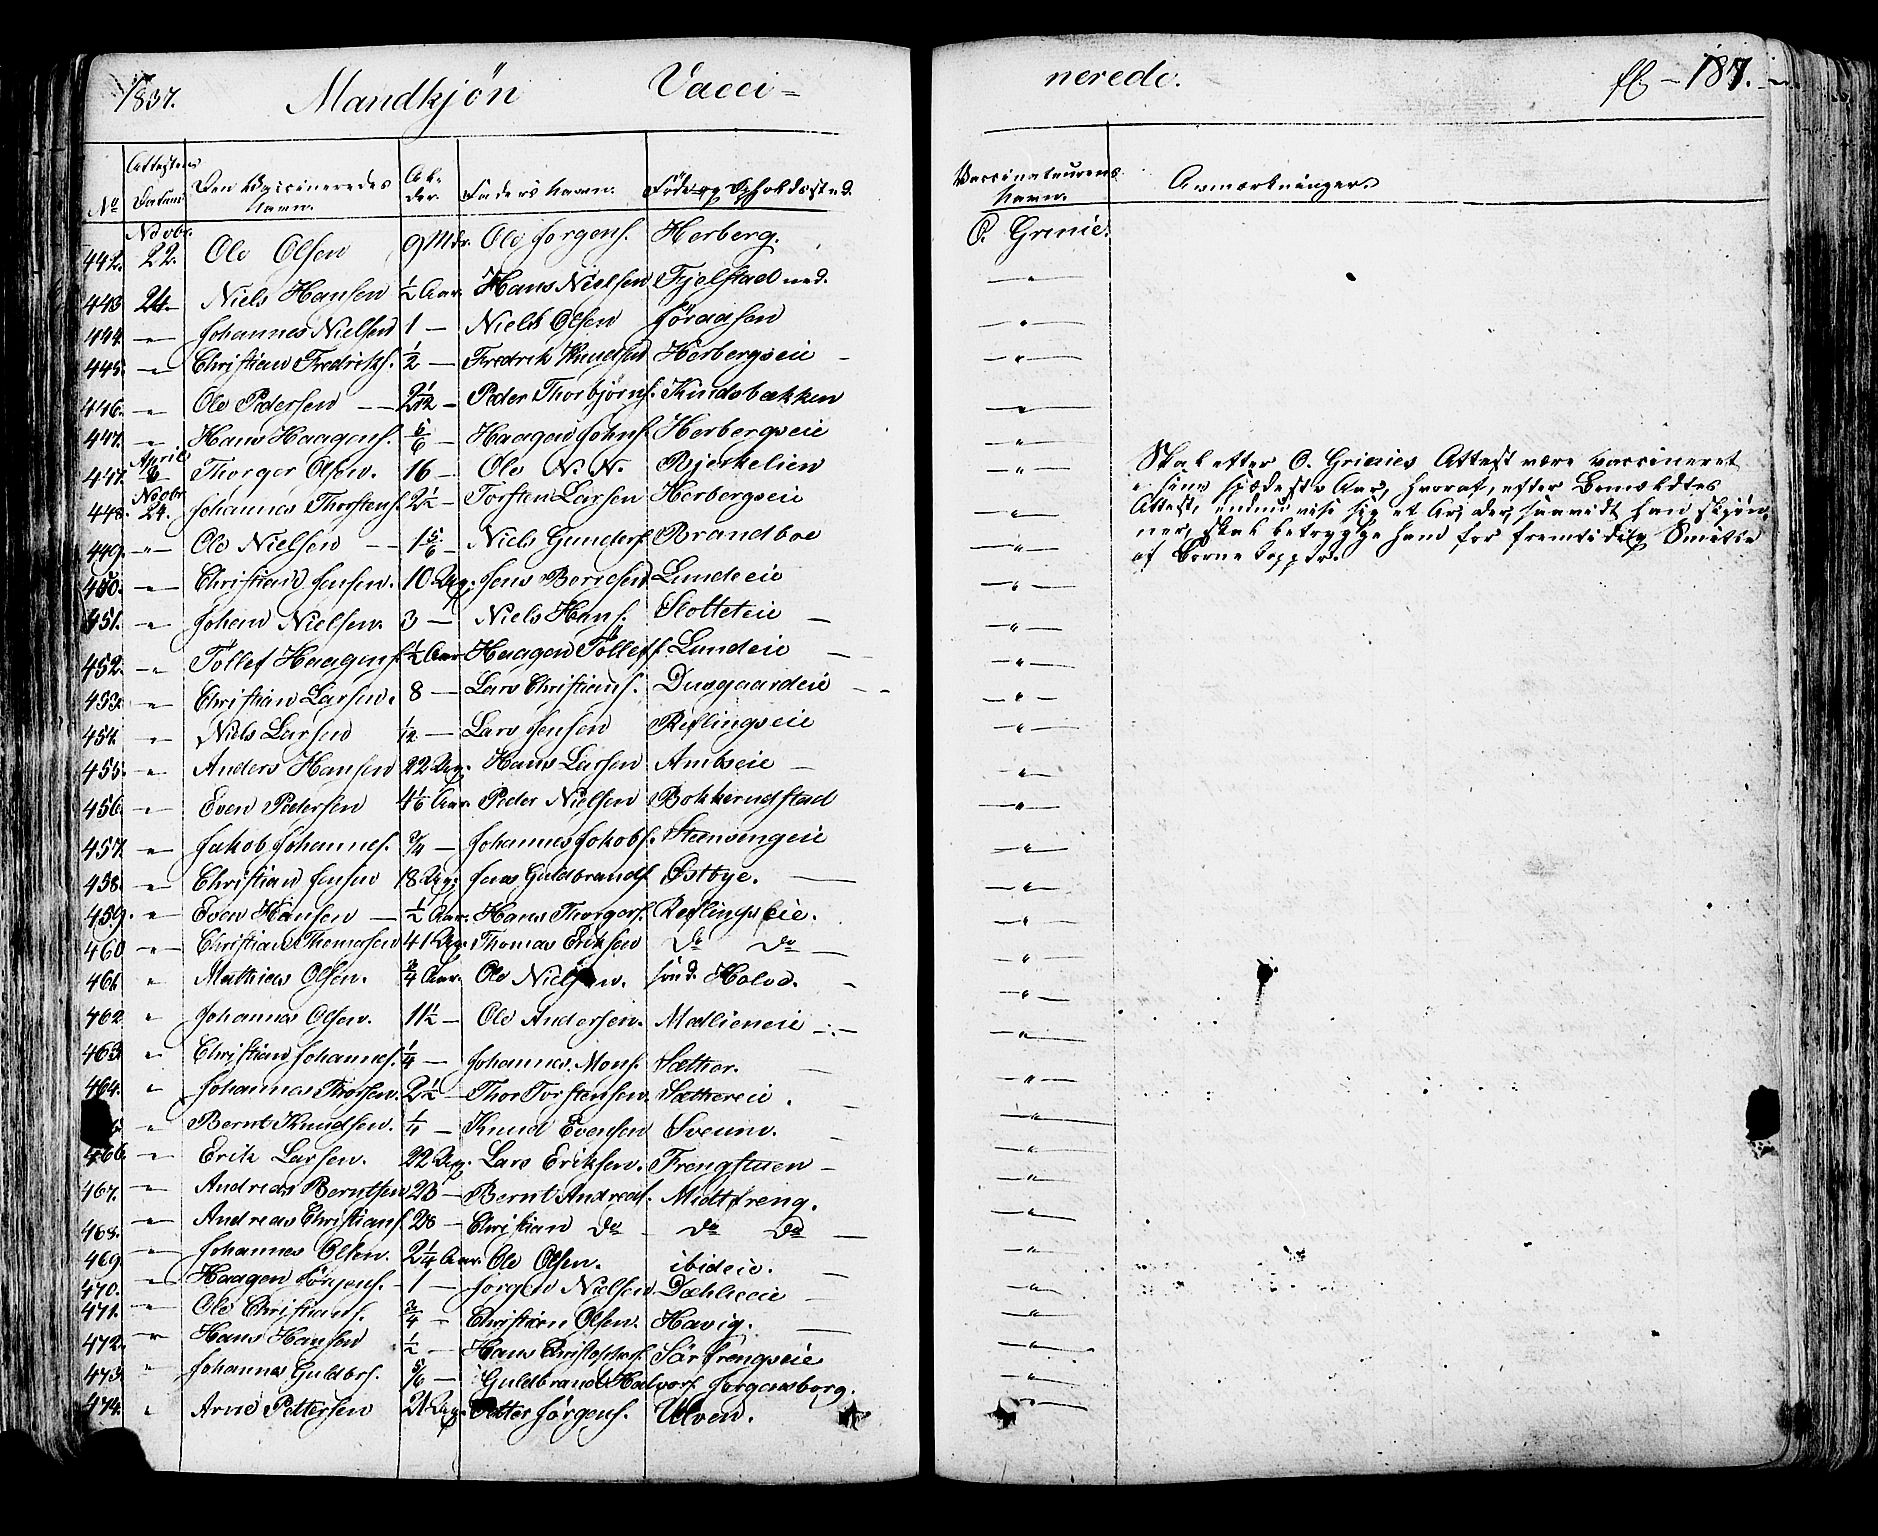 1837. Mandkjøn Vacci-
nerede. fl - 187.
No Attestens Datum Den Vaccineredes Navn. Al-der. Faders Navn. Føde og Opholdssted. Vaccinateurens Navn. Anmærkninger.
442. Novbr. 22. Ole Olsen 9 Mdr. Ole Jørgens. Herberg. O. Grinie.
443 24. Niels Hansen ½ Aar. Hans Nielsen Fjelstad ned. — " —
444 — " — Johannes Nielsen 1 — Niels Olsen Søraasen — " —
445. — " — Christian Fredriks. ½ — Fredrik Knudsen Herbergseie — — " —
446. — " — Ole Pedersen — 2 1/12 — Peder Thorbjørns. Kindsbækken — " —
447. — " — Hans Haagens. 5/6 — Haagen Johns. Herbergseie — " —
447. April 6 Thorger Olsen. 16 — Ole N. N. Bjerkelien — " — Skal efter O. Grienies Attest være vaccineret
i sine spædeste Aar, hvoraf, efter Bemældtes
448. Novbr. 24. Johannes Thorstens. 2½ — Torsten Larsen Herbergseie — " — Attest, endnu vise sig et Ar, der, saavidt han skjøn-
ner, skal betrygge ham for fremtidig Smitte
449. — " — Ole Nielsen — 1 5/6 — Niels Gunders. Brandboe — " — af Børnekopper.
450. — " — Christian Jensen. 10 Ug. Jens Beriesen Lundeie — " —
451. — " — Johan Nielsen. 3 — Niels Hans. Slotteteie — — " —
452 — " — Tollef Haagens. ½ Aar Haagen Tollefs. Lundeie — — " —
453. — " — Christian Larsen. 8 — Lars Christians. Dusgaardeie — — " —
454. — " — Niels Larsen ½ — Lars Jensen Reflingseie — " —
455. — " — Anders Hansen 22 Ug. Hans Larsen Amkeie — — " —
456. — " — Even Pedersen 4 1/6 Aar. Peder Nielsen Bokkerudstad — " —
457. — " — Jakob Johannes. 3/4 — Johannes Jakobs. Steensengeie — " —
458. — " — Christian Jensen 18 Ug. Jens Guldbrands. Østbye. — — " —
459. — " — Even Hansen — ½ Aar. Hans Thorgers. Reflingseie. — " —
460 — " — Christian Thomasen 41 Ug. Thomas Eriksen Do Do — — " —
461. " Mathias Olsen. 3/4 Aar. Ole Nielsen. sønd. Holve. — — " —
462 " Johannes Olsen. 11½ — Ole Andersen. Mælieneie — — " —
463. — " Christian Johannes. ¼ — Johannes Mons. Sæther. — — " —
464. " Johannes Thorsen. 2½ — Thor Torstensen. Sæthereie. — — " —
5 " Bernt Knudsen. ¼ — Knud Evensen Sveum. — — " —
466. — " Erik Larsen. 22 Ug. Lars Eriksen. Frengstuen — — " —
467. — " Andreas Berntsen 23 — Bernt Andreas. Midtfreng. — " —
468. — " Andreas Christians. 28 — Christian Do — Do Do — — " —
469. — " — Johannes Olsen. 2¼ Aar. Ole Olsen. ibideie. — — " —
470. — " — Haagen Jørgens. — 1 — Jørgen Nielsen Dæhlieie — — " —
471. — " — Ole Christians. 3/4 — Christian Olsen. Havig. — — " —
472. — " — Hans Hansen ½ — Hans Christophers. Sørfrengseie — " —
473. — " Johannes Guldbrs. 5/6 — Guldbrand Halvors. Jørgensborg. — " —
474. " Arne Pettersen 21 Ug. Petter Jørgens. Ulven. — " —